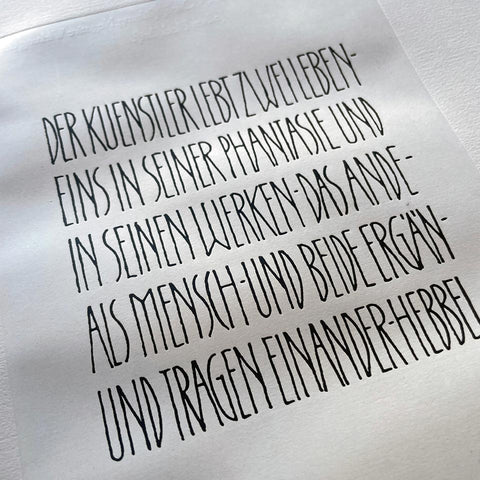 DER KUENSTLER LEBT ZWEI LEBEN-
EINS IN SEINER PHANTASIE UND
IN SEINEN WERKEN-DAS ANDE-
ALS MENSCH-UND BEIDE ERGÄN-
UND TRAGEN EINANDER-HEBBEL